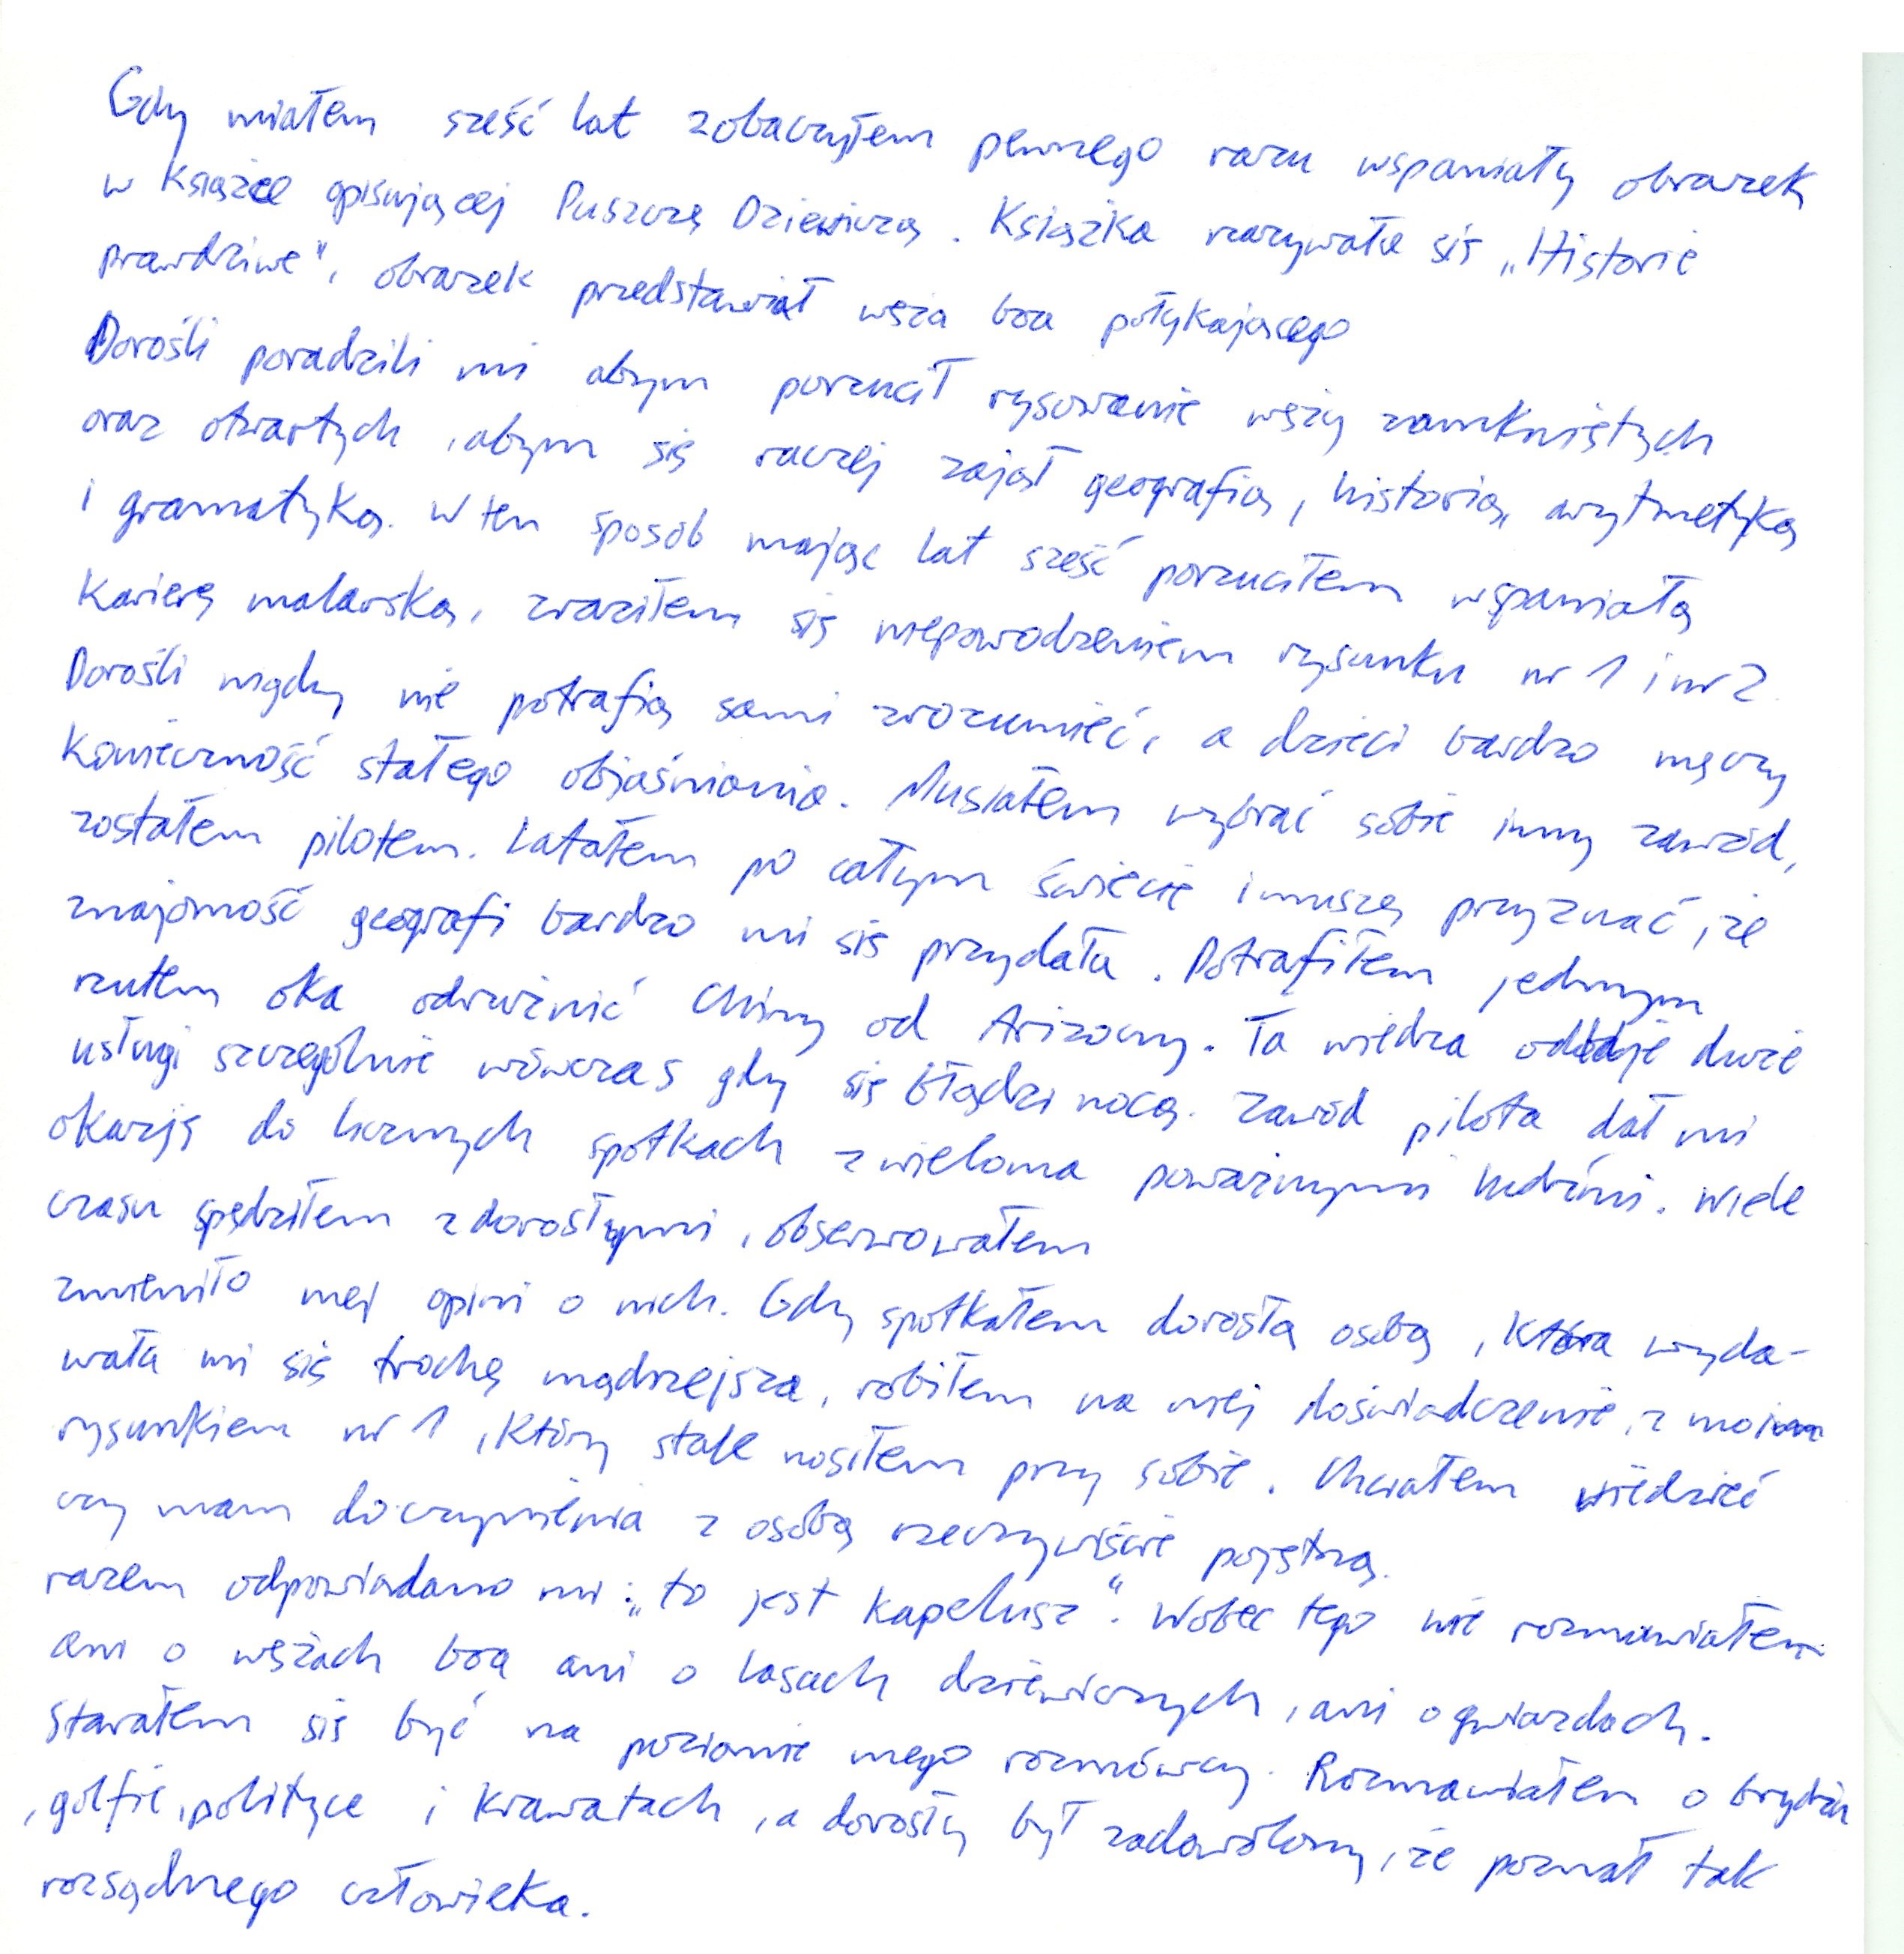 Gdy miałem sześć lat zobaczyłem pewnego razu wspaniały obrazek
w książce opisującej Puszczę Dziewiczą. Książka nazywała się „Historie
prawdziwe", obrazek przedstawiał węża boa połykającego
Dorośli poradzili mi abym porzucił rysowanie węży zamkniętych
oraz otwartych, abym się raczej zajął geografią, historią, arytmetyką
i gramatyką. W ten sposób mając lat sześć porzuciłem wspaniałą
karierę malarską, zraziłem się niepowodzeniem rysunku nr 1 i nr 2.
Dorośli nigdy nie potrafią sami zrozumieć, a dzieci bardzo męczy
konieczność stałego objaśniania. Musiałem wybrać sobie inny zawód,
zostałem pilotem. Latałem po całym świecie i muszę przyznać, że
znajomość geografi bardzo mi się przydała. Potrafiłem jednym
rzutem oka odróżnić Chiny od Arizony. Ta wiedza oddaje duże
usługi szczególnie wówczas gdy się błądzi nocą. Zawód pilota dał mi
okazję do licznych spotkach z wieloma poważnymi ludźmi. Wiele
czasu spędziłem z dorosłymi, obserwowałem
zmieniło mej opini o nich. Gdy spotkałem dorosłą osobą, która wyda-
wała mi się trochę mądrzejsza, robiłem na niej doświadczenie, z moim
rysunkiem nr 1, który stale nosiłem przy sobie. Chciałem wiedzieć
czy mam do czynienia z osobą rzeczywiście pojętną.
razem odpowiadano mi: „to jest kapelusz". Wobec tego nie rozmawiałem
ani o wężach boa ani o lasach dziewiczych, ani o gwiazdach.
Starałem się być na poziomie mego rozmówcy. Rozmawiałem o brydżu
, golfie, polityce i krawatach, a dorosły był zadowolony, że poznał tak
rozsądnego człowieka.